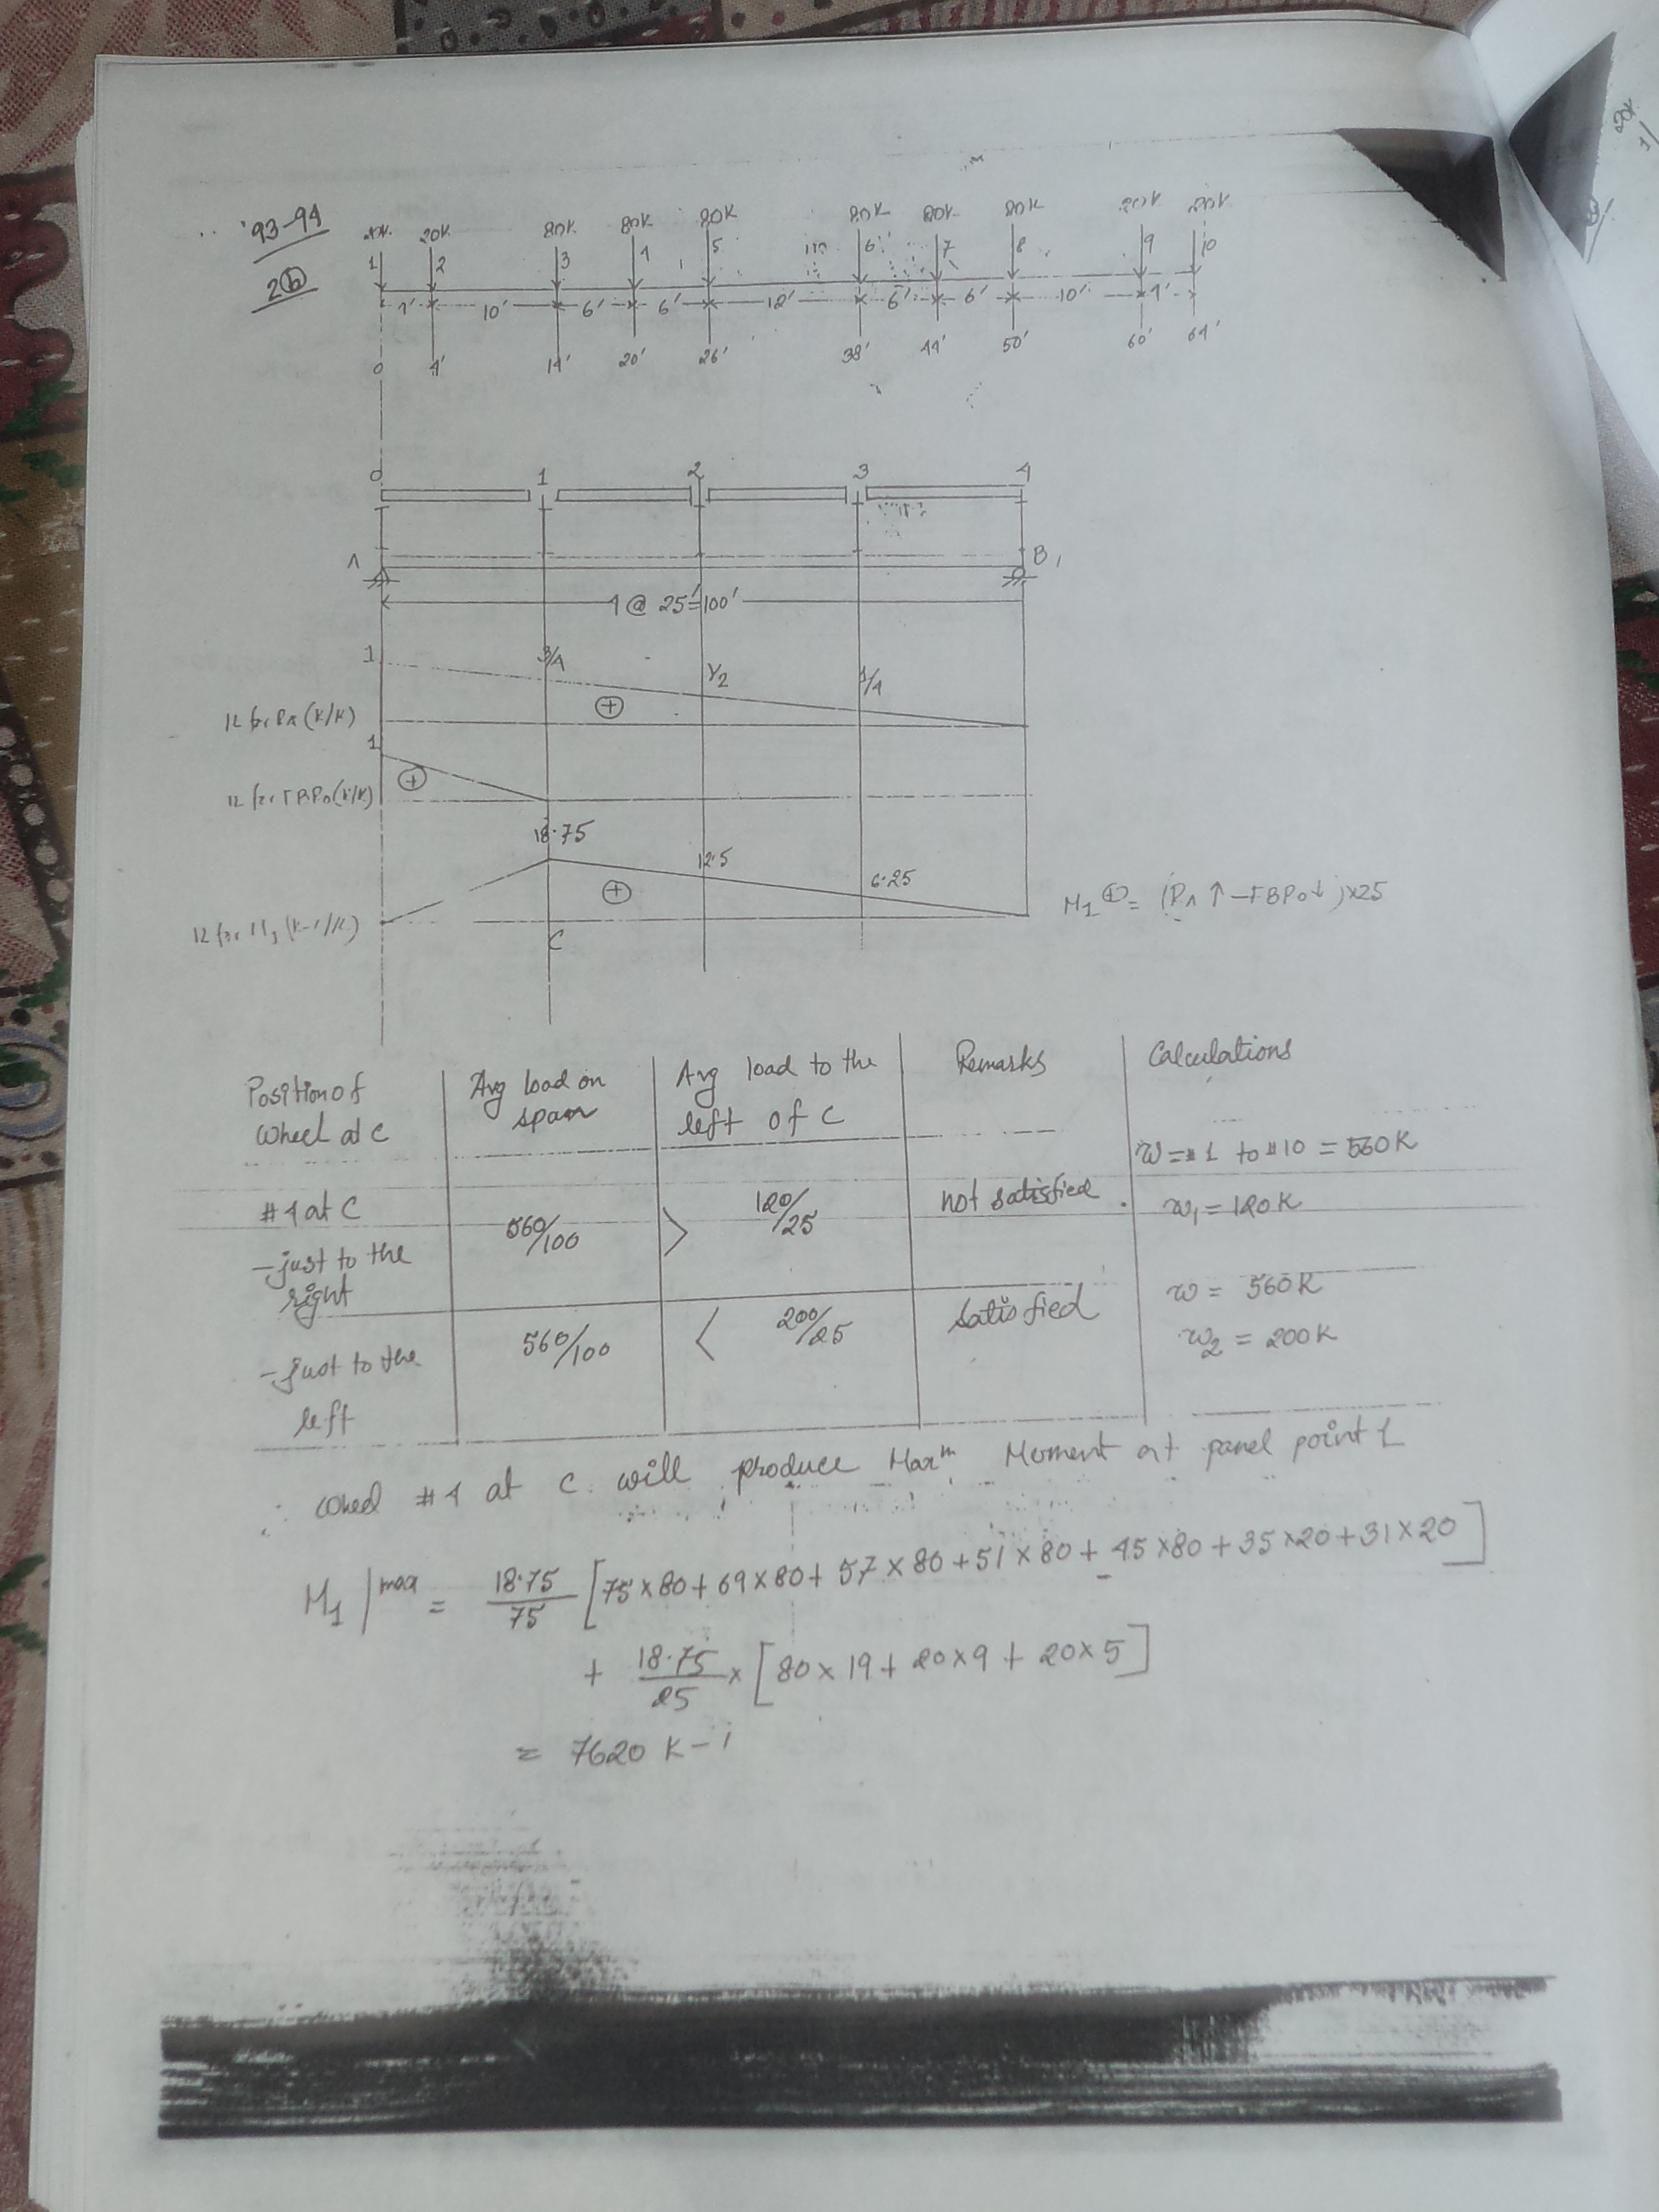 '93-94
2(b)
20K. 20K. 80K 80K 80K 80K 80K 80K 20K 20K
1 2 3 4 5 6 7 8 9 10
4' 10' 6' 6' 12' 6' 6' 10' 4'
0 4' 14' 20' 26' 38' 44' 50' 60' 64'
0 1 2 3 4
A B
4 @ 25'=100'
1 3/4 1/2 1/4
IL for RA (K/K) +
1
IL for FBR0 (K/K) +
18.75 12.5 6.25
IL for M1 (K-'/K) + C
M1 + = (RA ↑ - FBR0 ↓) x25
Position of wheel at C | Avg load on span | Avg load to the left of C | Remarks | Calculations
W = #1 to #10 = 560K
#4 at C
- just to the right | 560/100 | > | 120/25 | not satisfied. | w1 = 120K
- just to the left | 560/100 | < | 200/25 | satisfied | w = 560K
w2 = 200K
∴ wheel #4 at C will produce Maxm Moment at panel point 1
M1|max = 18.75/75 [75×80+69×80+57×80+51×80+45×80+35×20+31×20]
+ 18.75/25 × [80×19+20×9+20×5]
= 7620 K-'